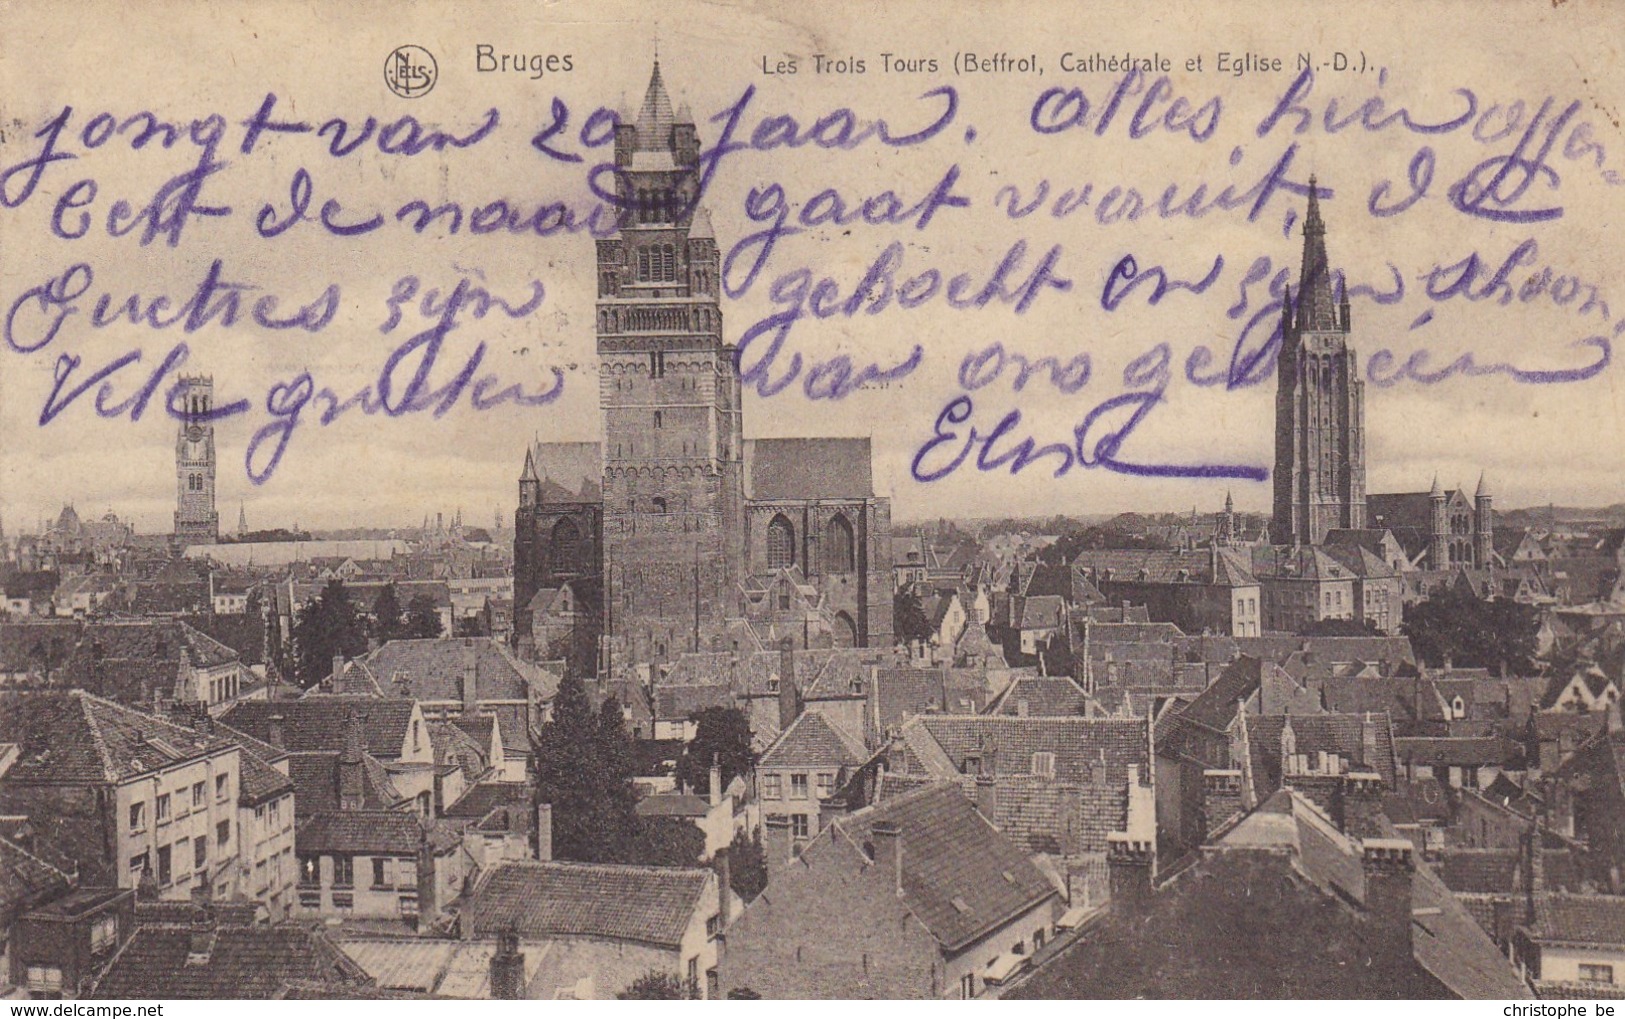 NELS
Bruges
Les Trois Tours (Beffroi, Cathédrale et Eglise N.-D.).
jongt van 20 jaar. Alles hier
de naad gaat vooruit, de
zijn gekocht en zijn schoon,
Vele groeten van ons gedrieën
christophe be